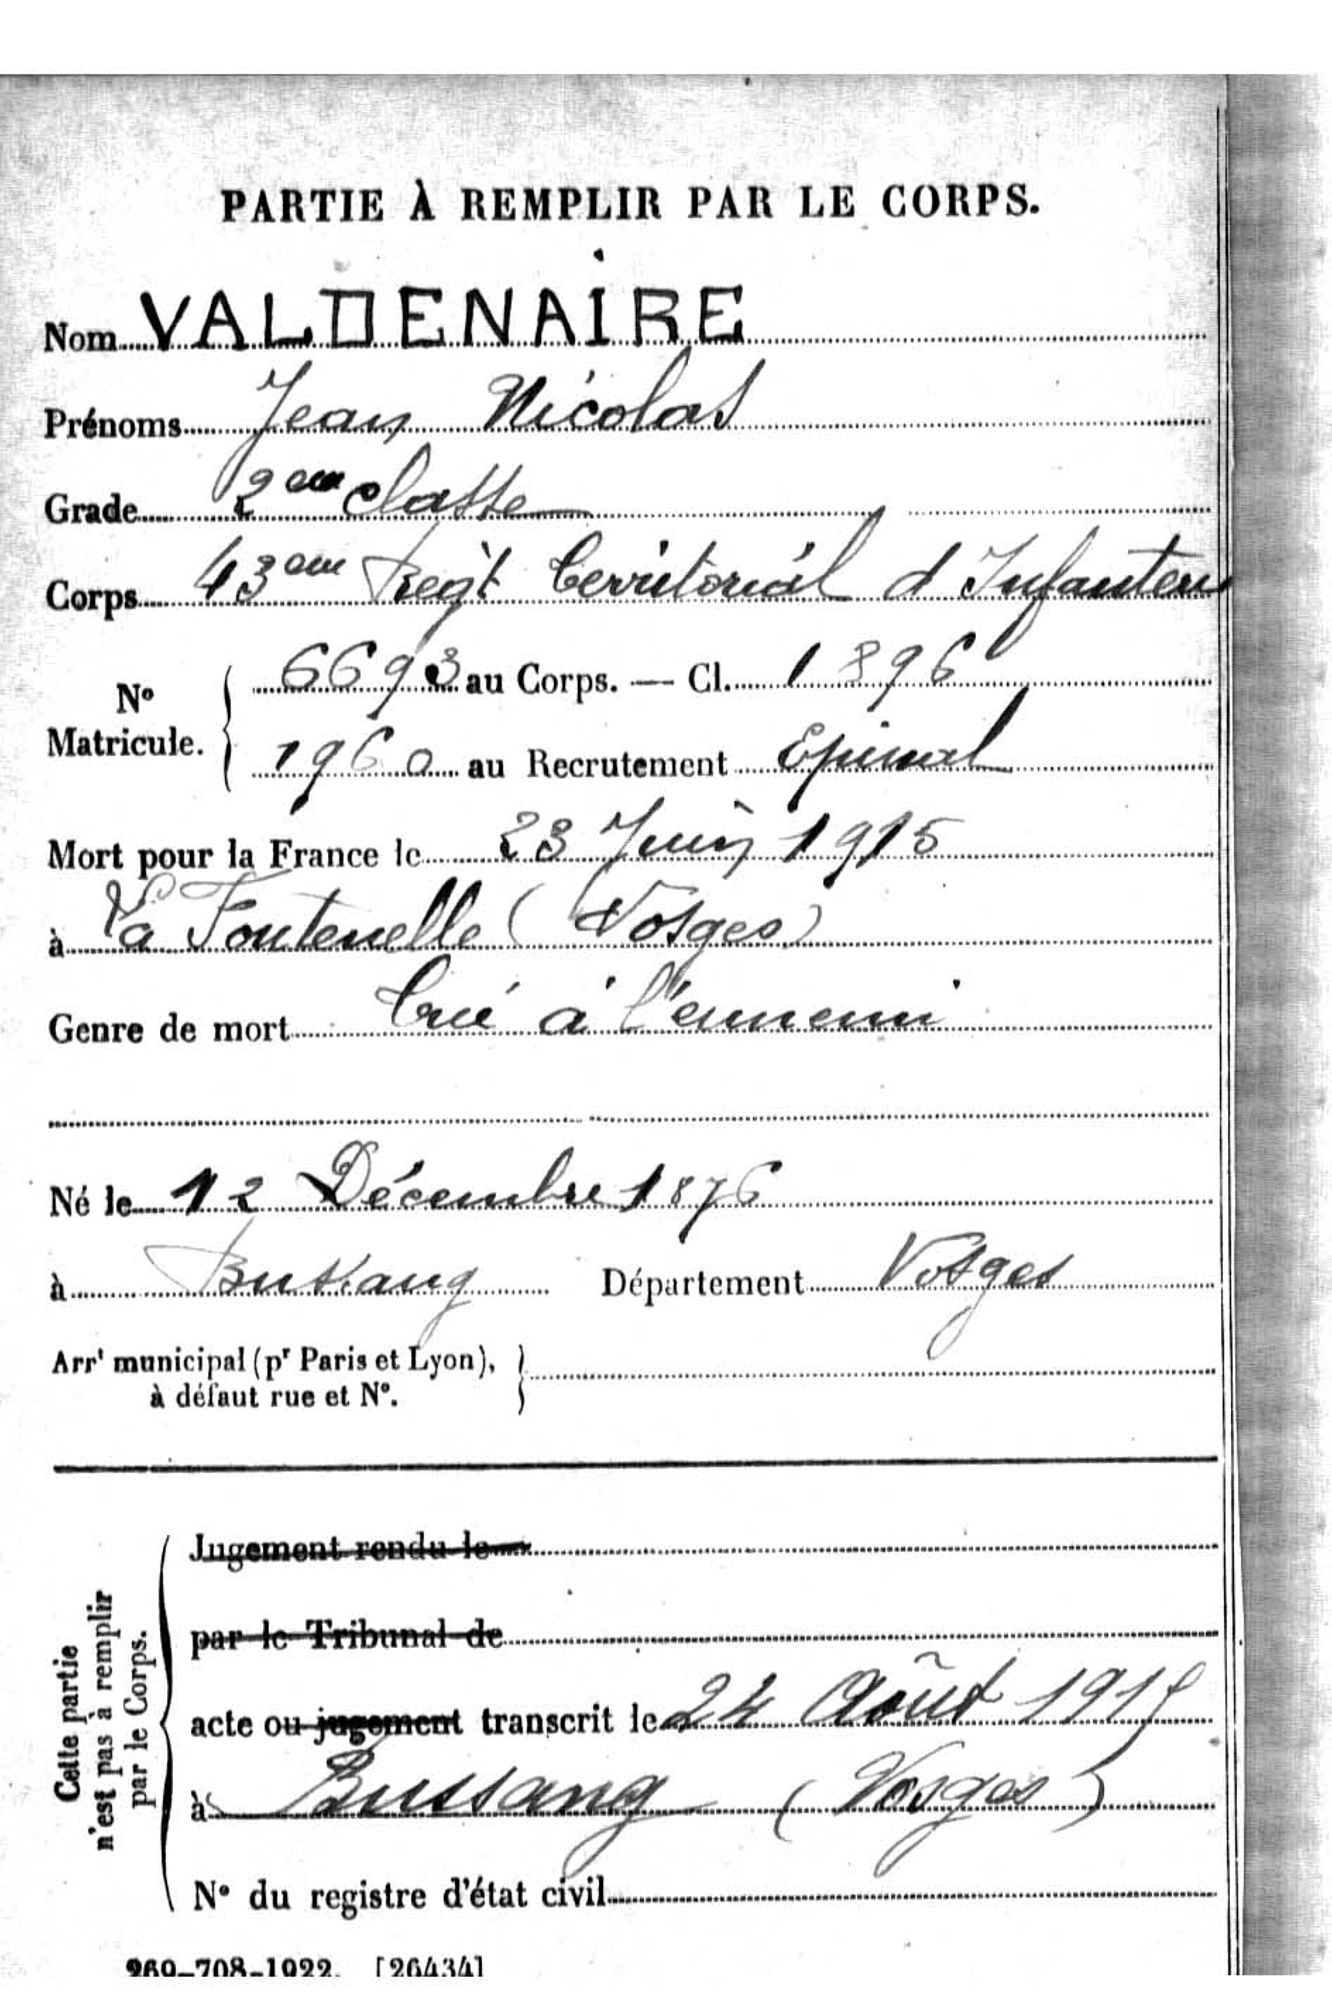 PARTIE À REMPLIR PAR LE CORPS.
Nom VALDENAIRE
Prénoms Jean Nicolas
Grade 2eme classe
Corps 43eme Regt Territorial d'Infanterie
N° Matricule. { 6693 au Corps. — Cl. 1896
1960 au Recrutement Epinal
Mort pour la France le 23 Juin 1915
à La Fontenelle (Vosges)
Genre de mort Tué à l'ennemi
Né le 12 Décembre 1876
à Bussang Département Vosges
Arrt municipal (pr Paris et Lyon), }
à défaut rue et N°.
Cette partie
n'est pas à remplir
par le Corps.
Jugement rendu le
par le Tribunal de
acte ou jugement transcrit le 24 Août 1915
à Bussang (Vosges)
N° du registre d'état civil
269-708-1922. [26434]